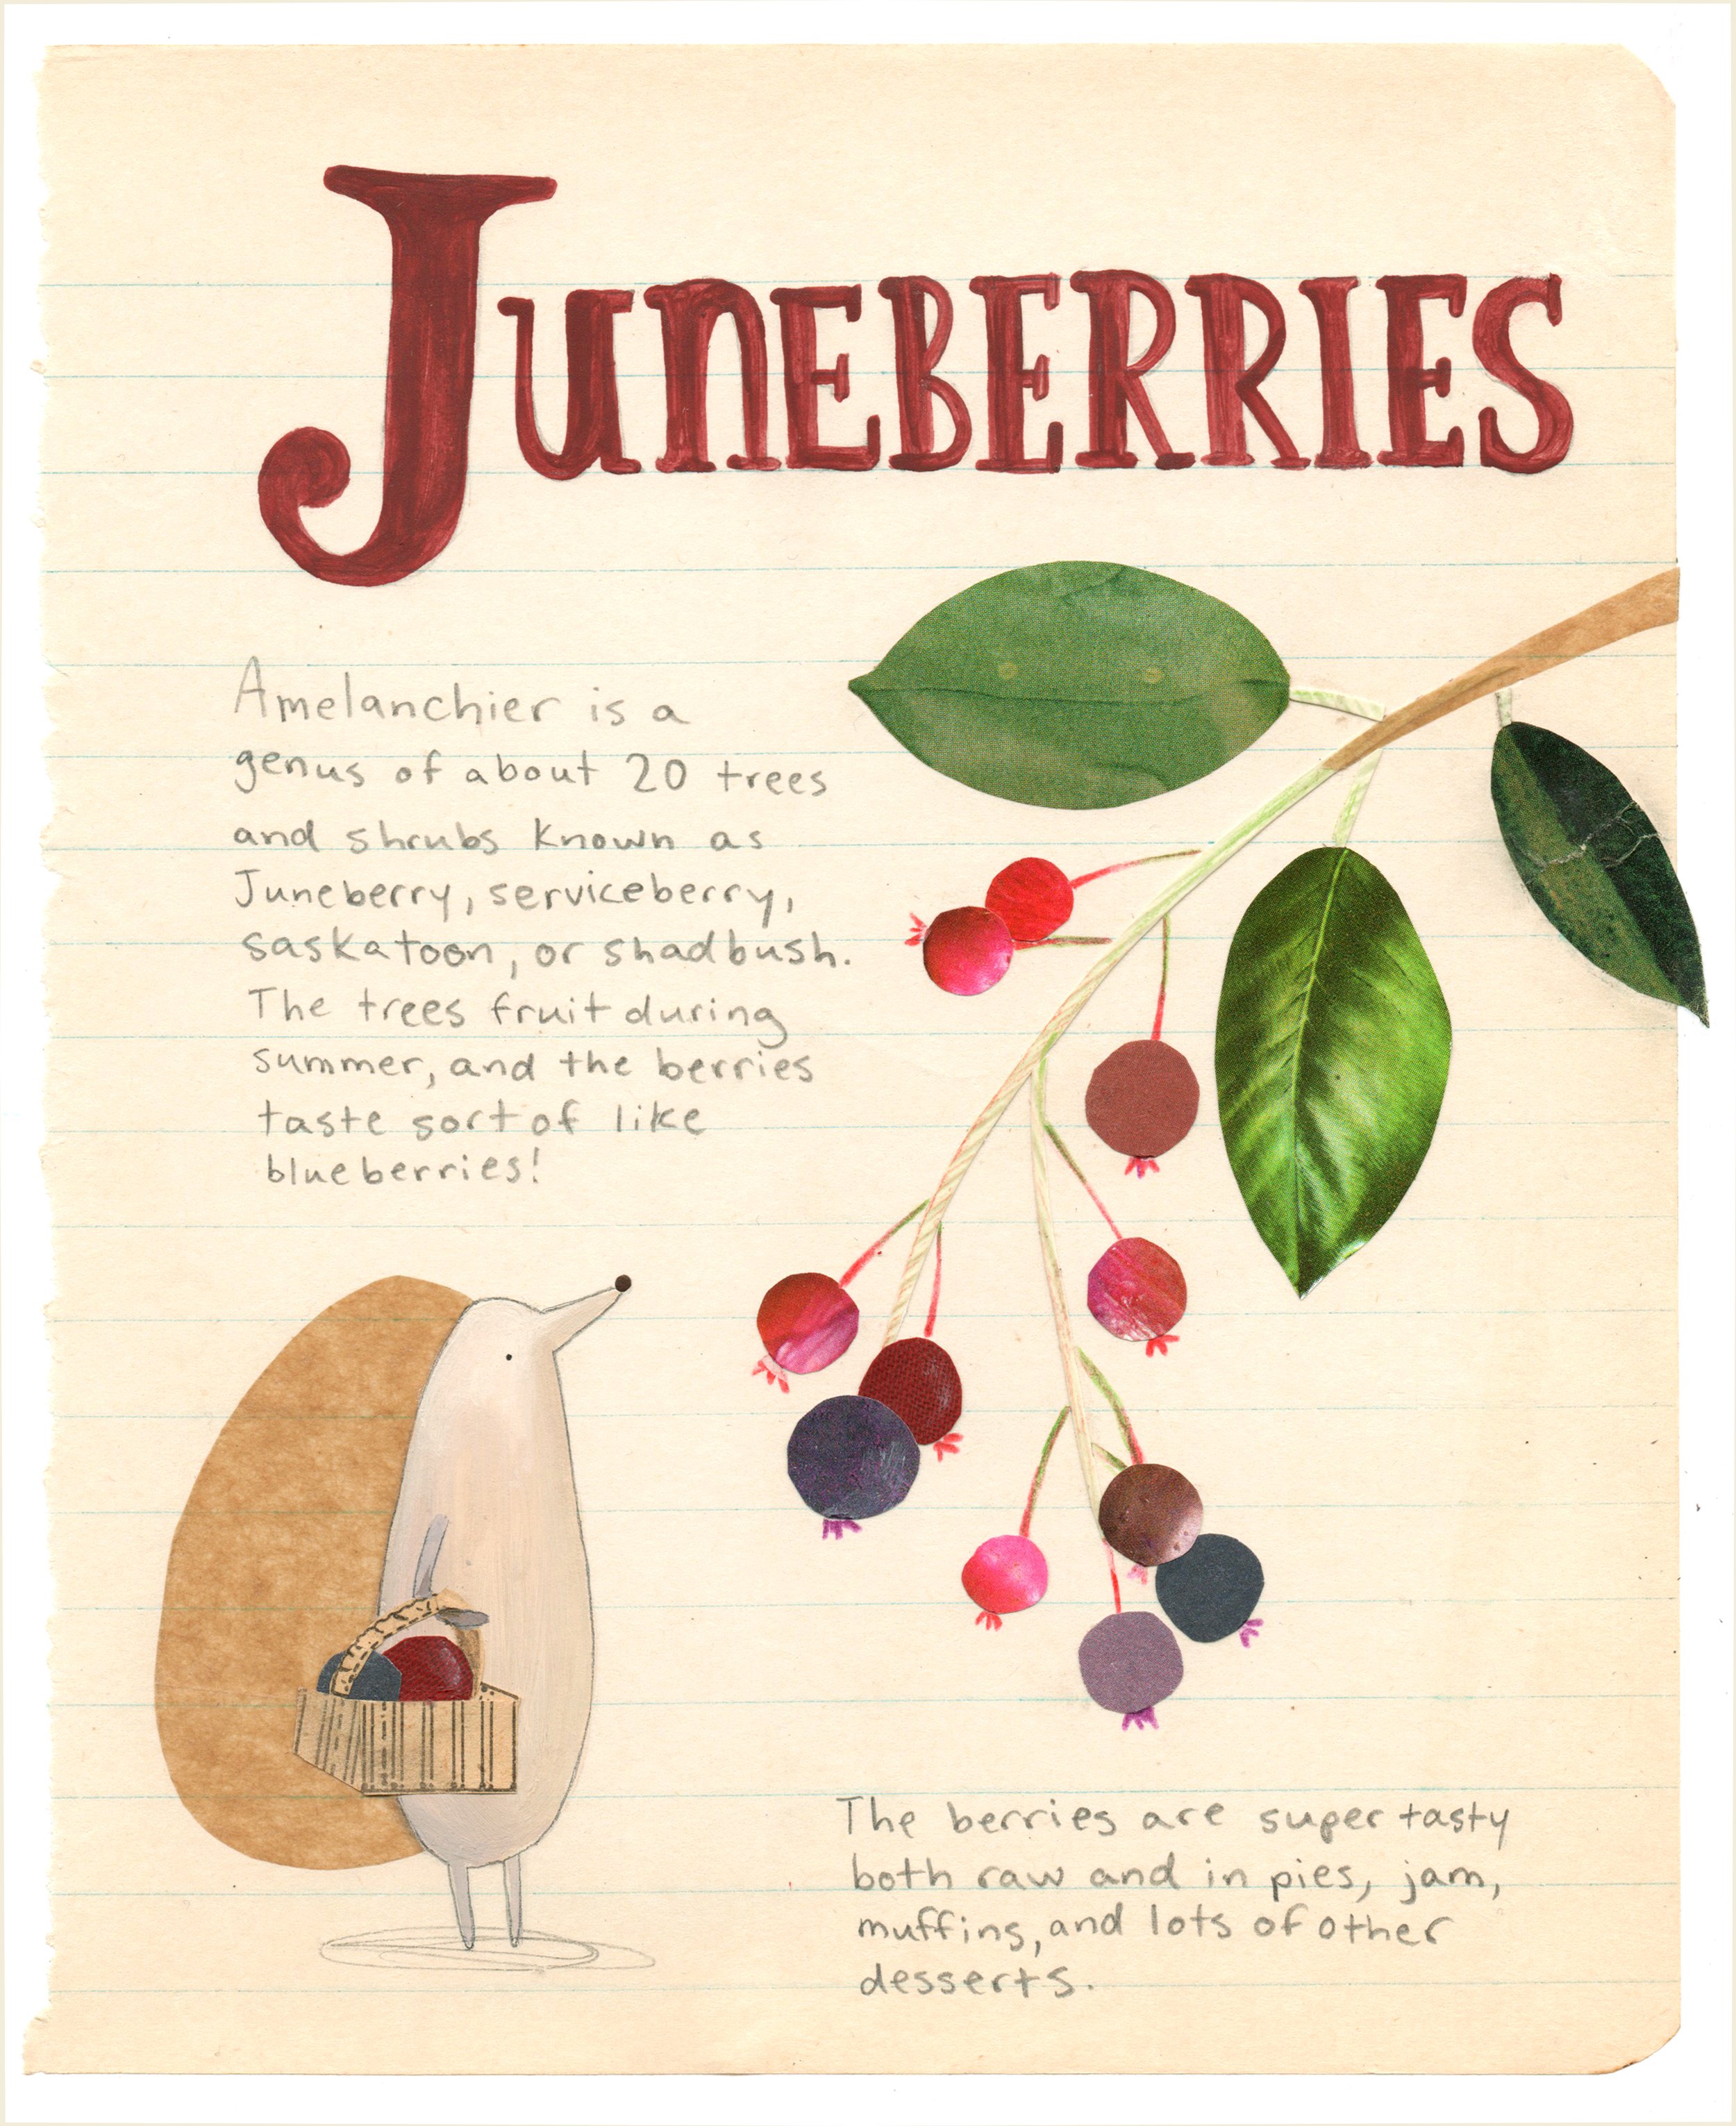 JUNEBERRIES
Amelanchier is a
genus of about 20 trees
and shrubs known as
Juneberry, serviceberry,
saskatoon, or shadbush.
The trees fruit during
summer, and the berries
taste sort of like
blueberries!
The berries are super tasty
both raw and in pies, jam,
muffins, and lots of other
desserts.